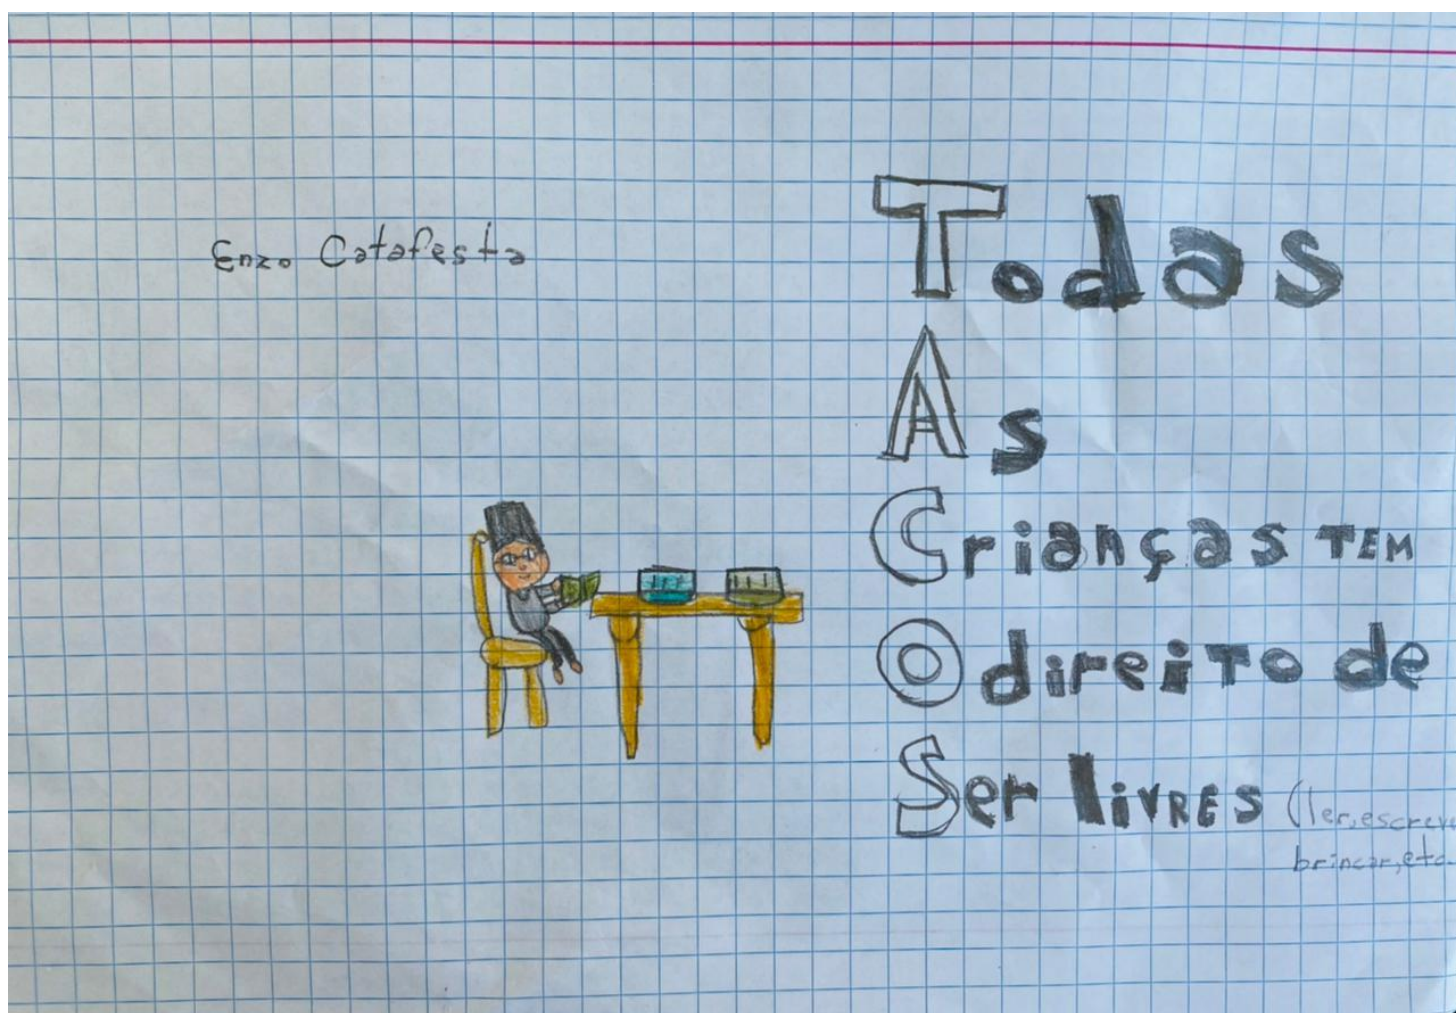 Enzo Catafesta
Todas
As
Crianças TEM
O direito de
Ser livRES (ler, escreve
brincar, etc.